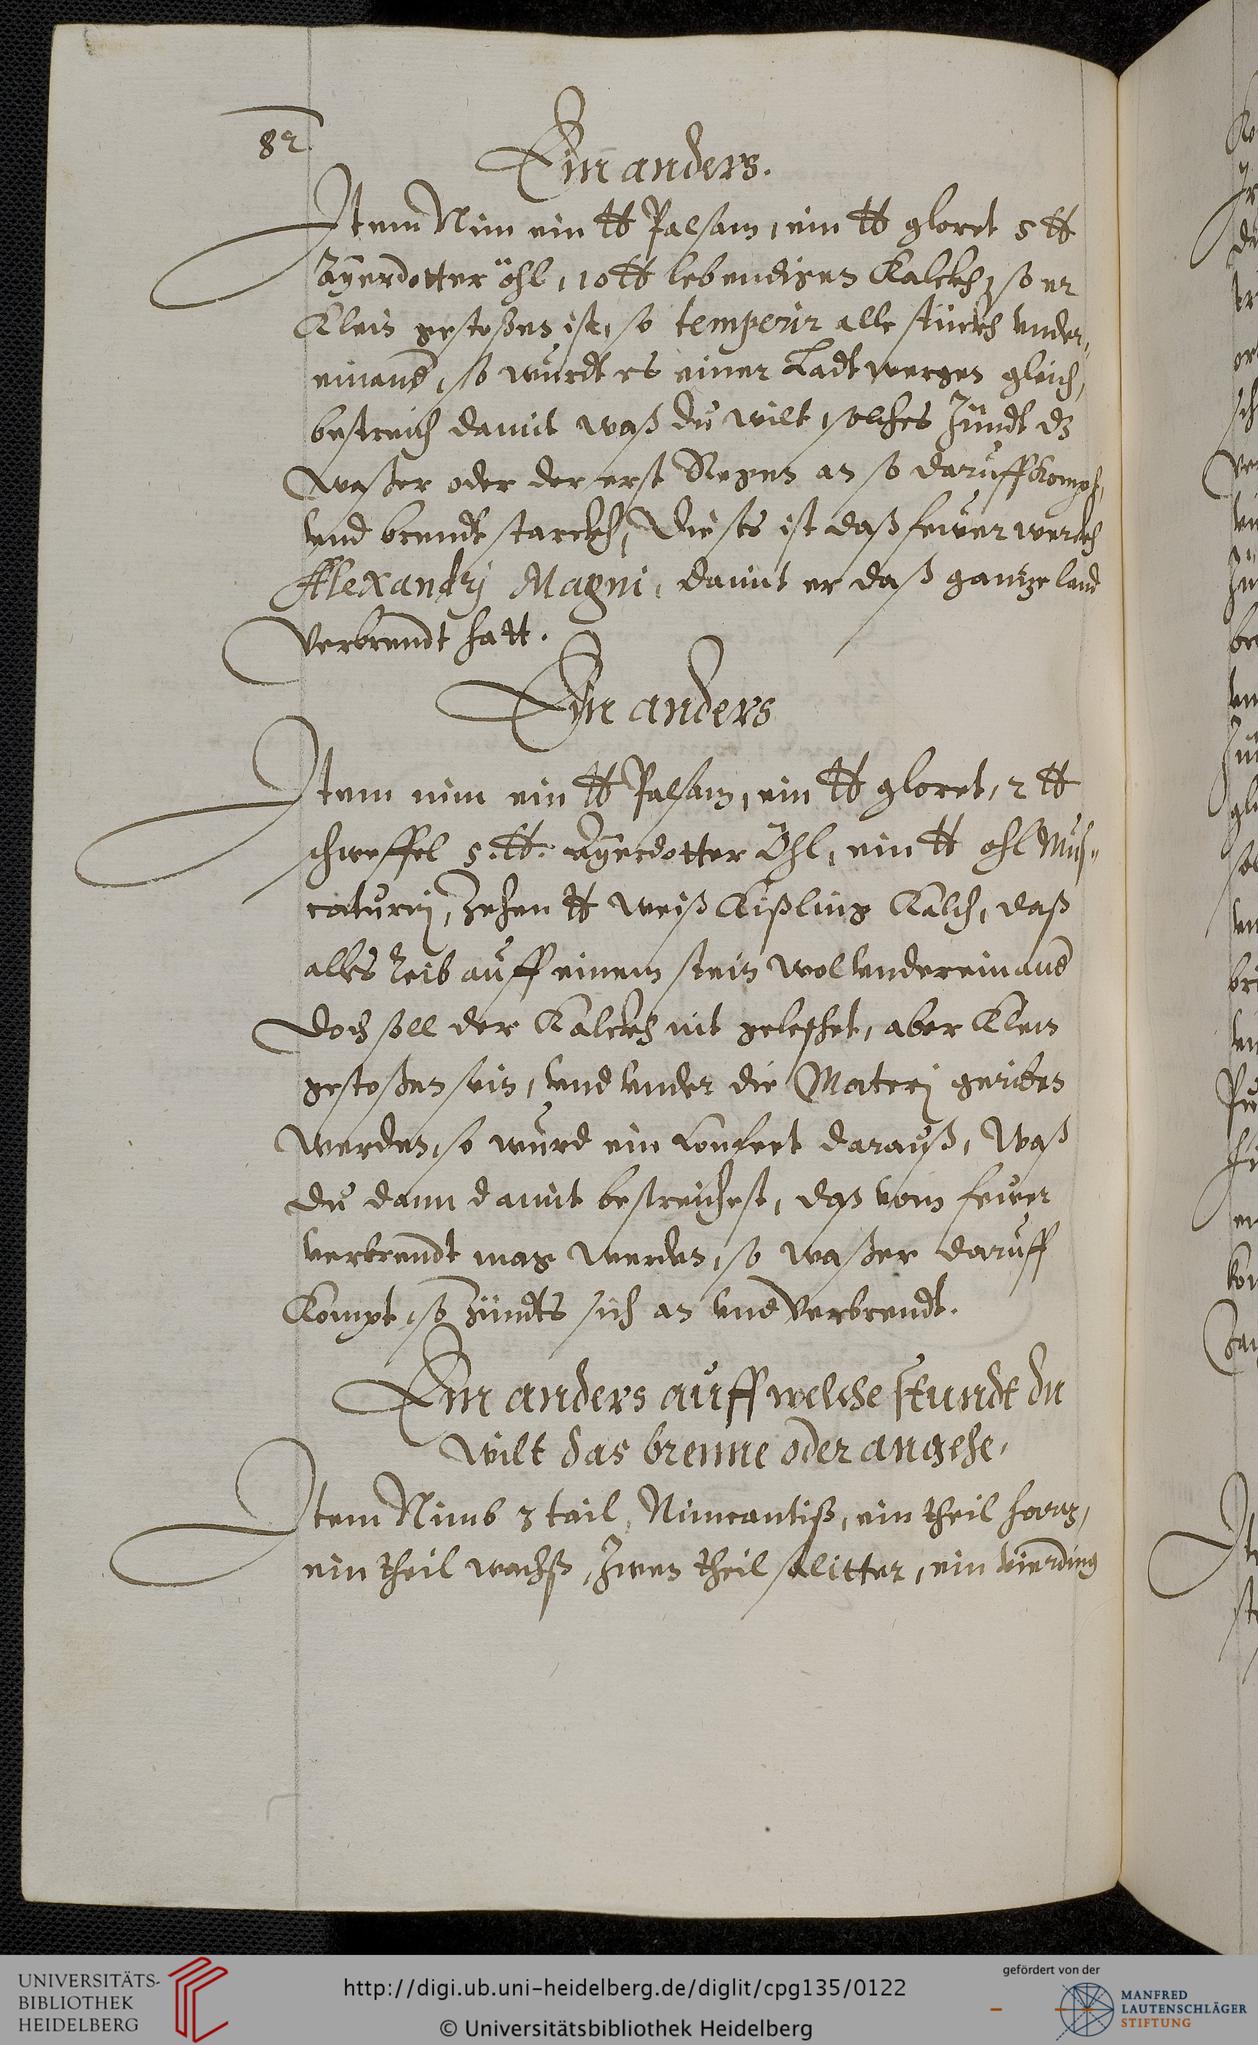 82
Ein anders.
Item Nim ein ℔ Palsam, ein ℔ gloret 5 ℔
Ayerdotter öhl, 10 ℔ lebendigen Kalckh, so er
Klein gestoßen ist, so temperir alle stückh vnder-
einand, so wurdt es einer Ladtwergen gleich,
bestreich damit waß du wilt, solches Zündt dz
waßer oder der erst Regen an so daruff kompt,
vnd brendt starckh, Dieses ist daß feuwer werckh
Alexandrj Magni, damit er daß gantze land
verbrendt hatt.
Ein anders
Item nim ein ℔ Palsam, ein ℔ gloret, 2 ℔
schweffel 5. ℔. Ayerdotter Öhl, ein ℔ ohl
Zehen ℔ weiß Kißling Kalch, daß
alles reib auff einem stein wol vndereinand
Doch soll der Kalckh nit geleschet, aber Klein
gestoßen sein, vnd vnder die Materj geriben
werden, so wurd ein Confect darauß, Waß
du dann damit bestreichest, daß vom feuwer
verbrendt mag werden, so waßer daruff
Kompt, so Zündts sich an vnd verbrendt.
Ein anders auff welche stundt du
wilt das brenne oder angehe.
Item Nimb 3 tail, ein theil hartz,
ein theil wachß, Zwen theil salitter, ein vierding
UNIVERSITÄTS-
BIBLIOTHEK
HEIDELBERG
http://digi.ub.uni-heidelberg.de/diglit/cpg135/0122
© Universitätsbibliothek Heidelberg
gefördert von der
MANFRED
LAUTENSCHLÄGER
STIFTUNG